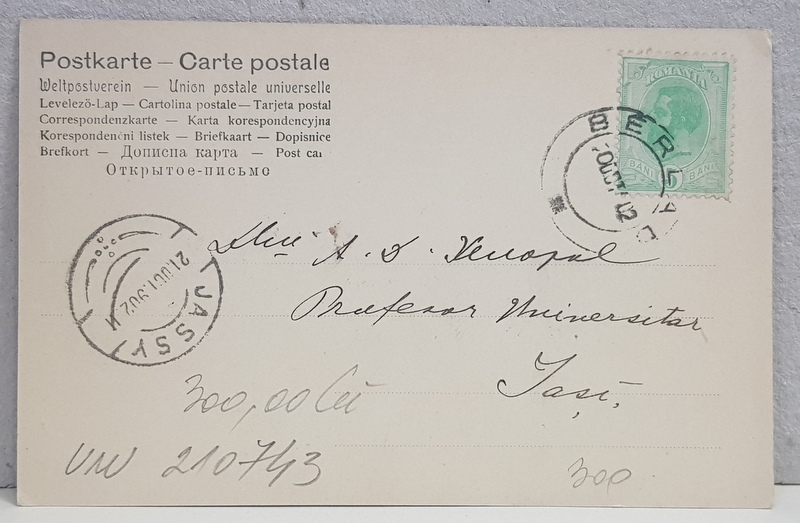 Postkarte — Carte postale
Weltpostverein — Union postale universelle
Levelező-Lap — Cartolina postale — Tarjeta postal
Correspondenzkarte — Karta korespondencyjna
Korespondenčni listek — Briefkaart — Dopisnice
Brefkort — Дописна карта — Post car
Открытое-письмо
ROMANIA
BANI 5 BANI
BERLAD
20 OCT 02
JASSY
21 OCT 902
Dlui A. D. Xenopol
Profesor Universitar
Iași.
300,00 lei
VW 210743
300